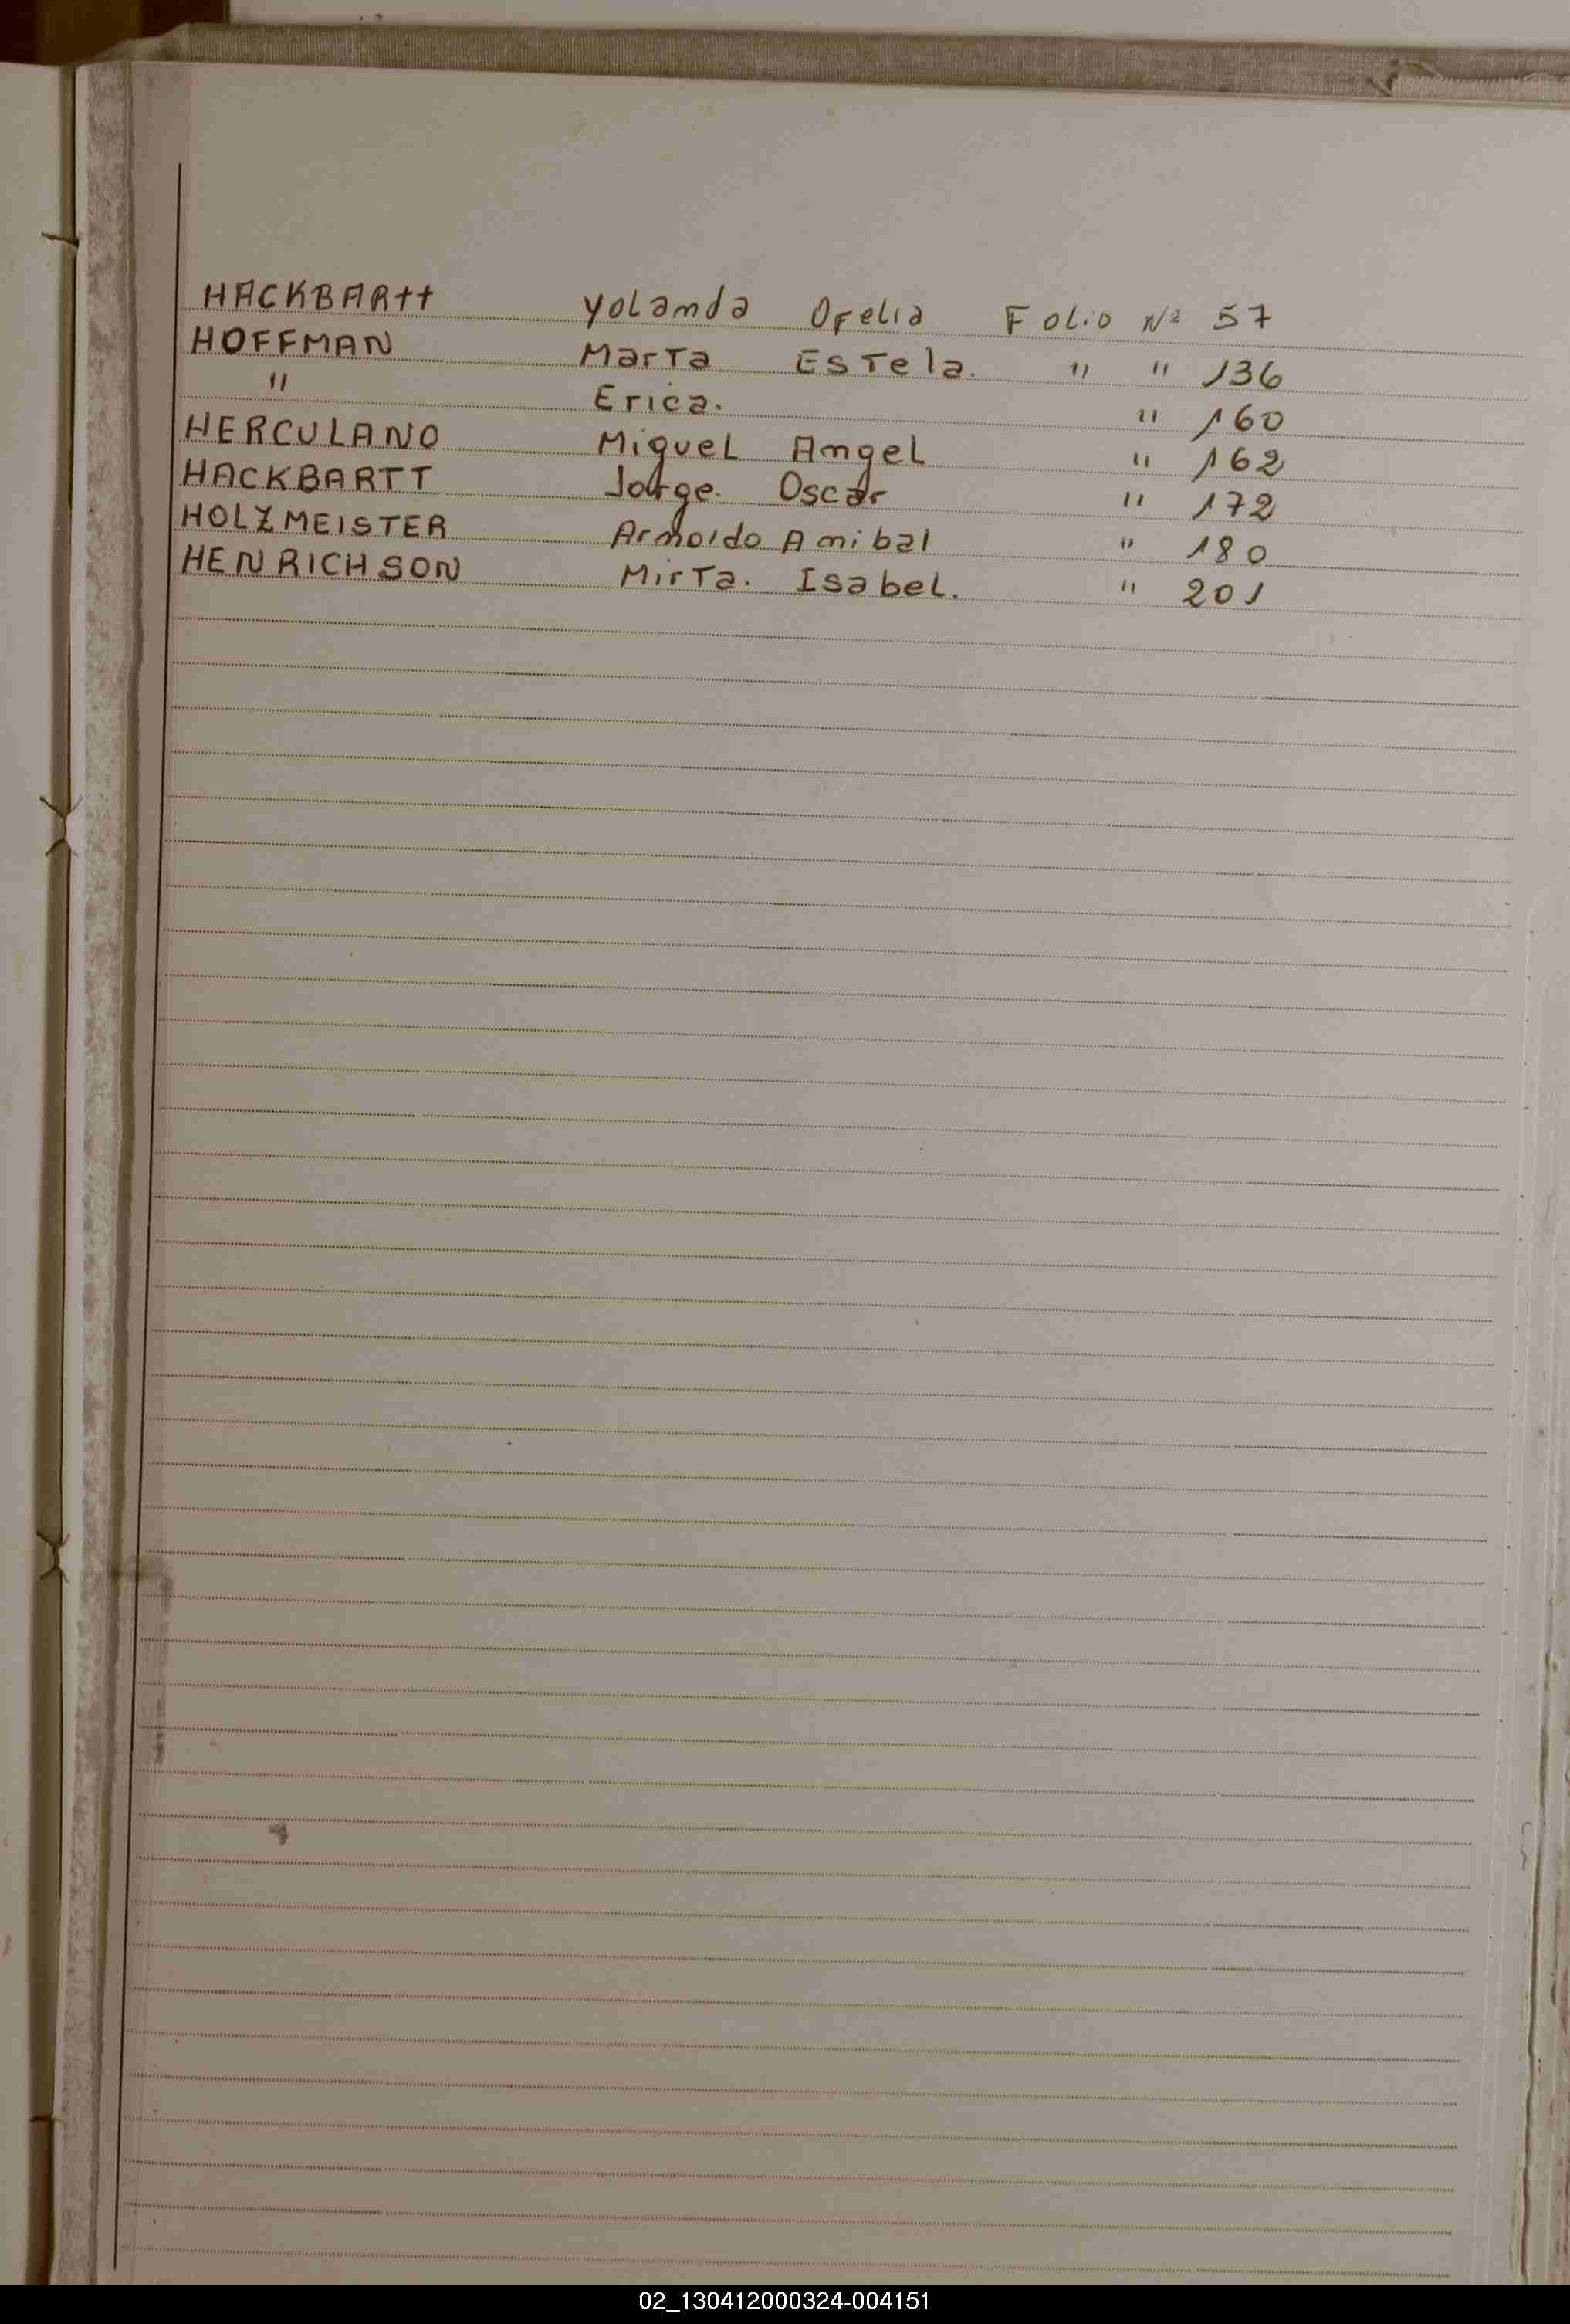 HACKBARtt Yolanda Ofelia Folio Nº 57
HOFFMAN Marta Estela. " " 136
" Erica. " 160
HERCULANO Miguel Angel " 162
HACKBARTT Jorge. Oscar " 172
HOLZMEISTER Arnoldo Anibal " 180
HENRICHSON Mirta. Isabel. " 201
02_130412000324-004151